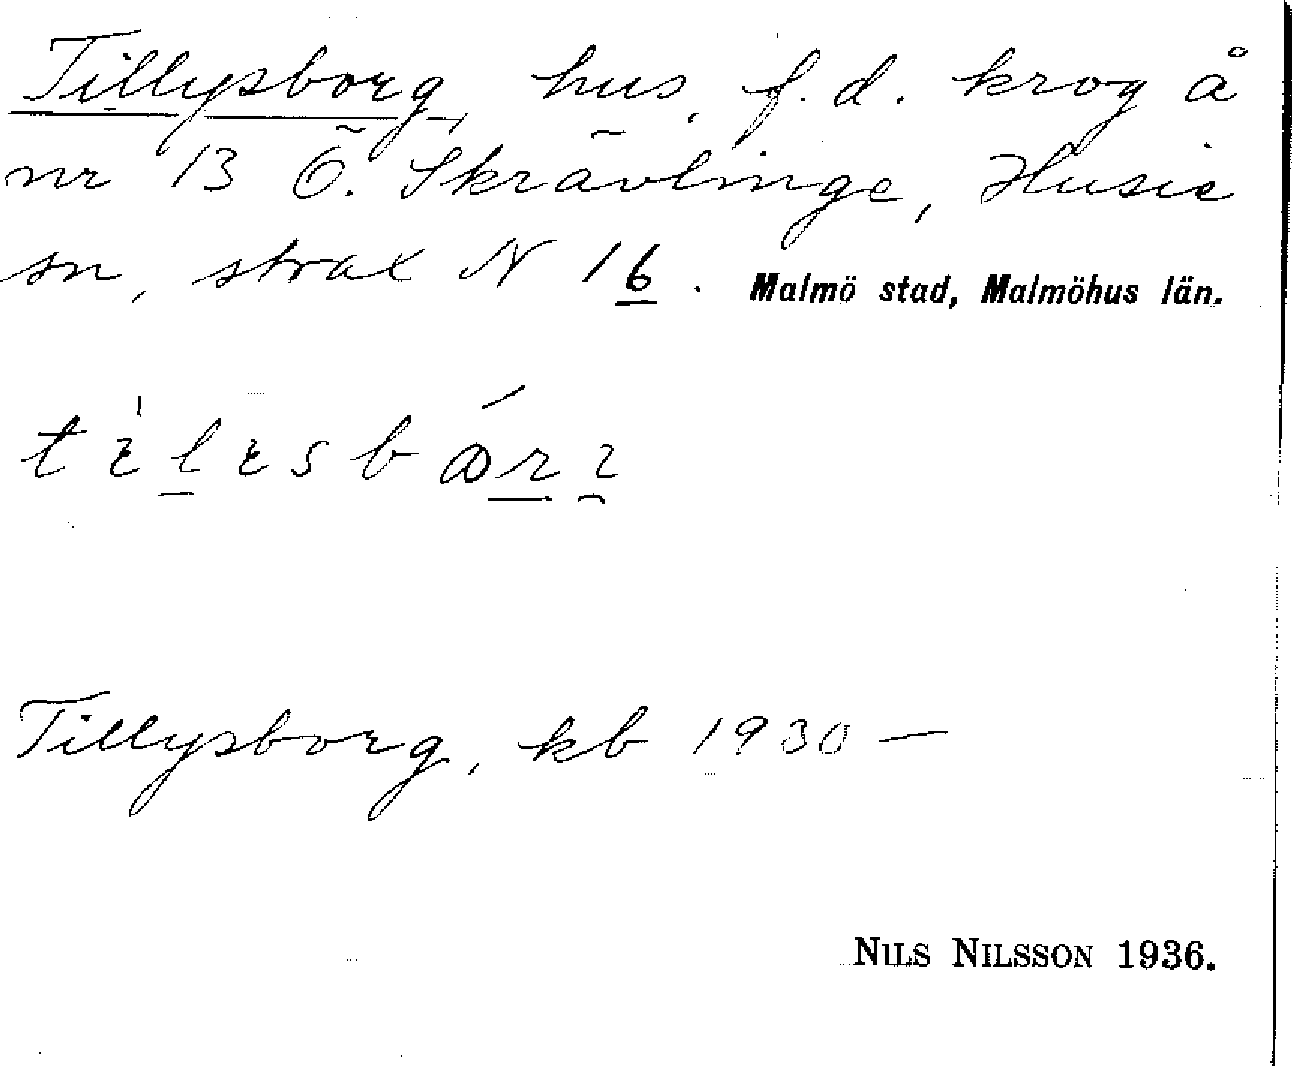 Tillysborg, hus, f.d. krog å
nr 13 Ö. Skrävlinge, Husie
sn, strax N 16.
Malmö stad, Malmöhus län.
Tillysborg, kb 1930 —
NILS NILSSON 1936.